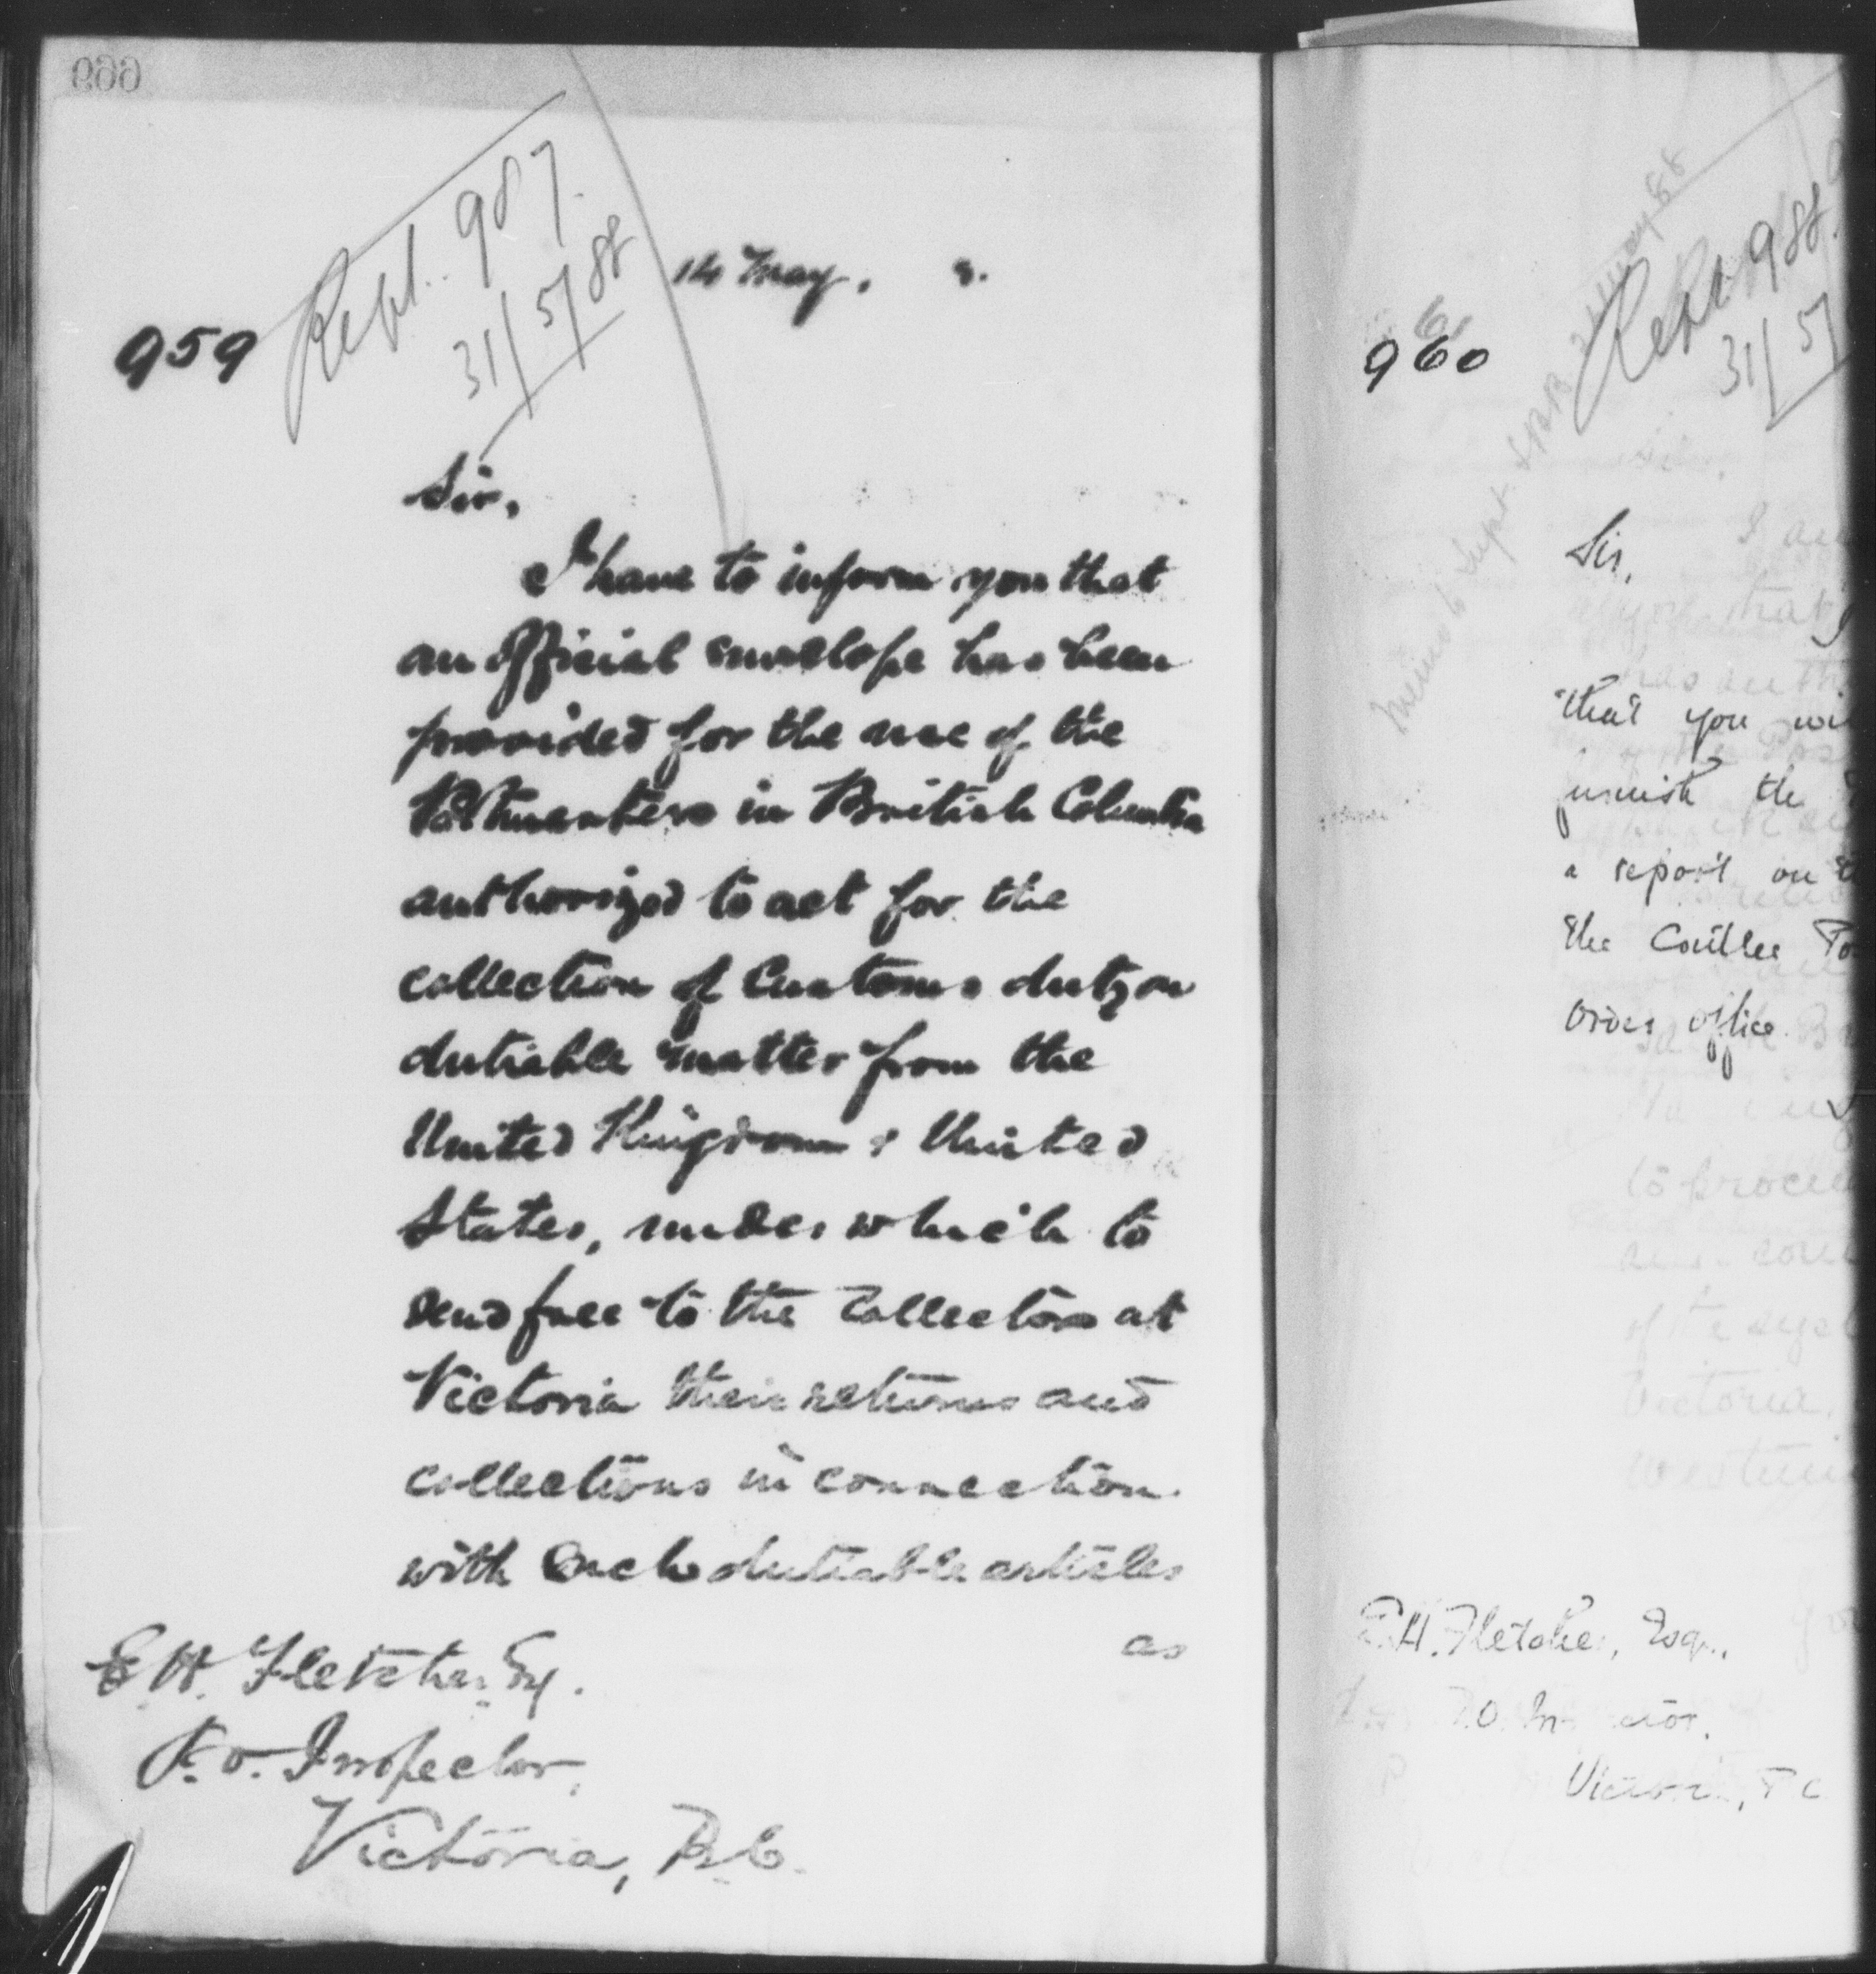 669
Repl. 987.
31/5/88
14 May, 8.
959
Sir,
I have to inform you that
an official envelope has been
provided for the use of the
Postmasters in British Columbia
authorized to act for the
collection of Customs duty on
dutiable matter from the
United Kingdom & United
States, under which to
send free to the Collector at
Victoria their returns and
collections in connection
with such dutiable articles
as
E. H. Fletcher Esq.
P.O. Inspector,
Victoria, B.C.
960
988
31/5/
Sir,
that you
furnish the
a report on
the Coutlee
Order office
E.H. Fletcher, Esq.,
P.O.
Victoria,